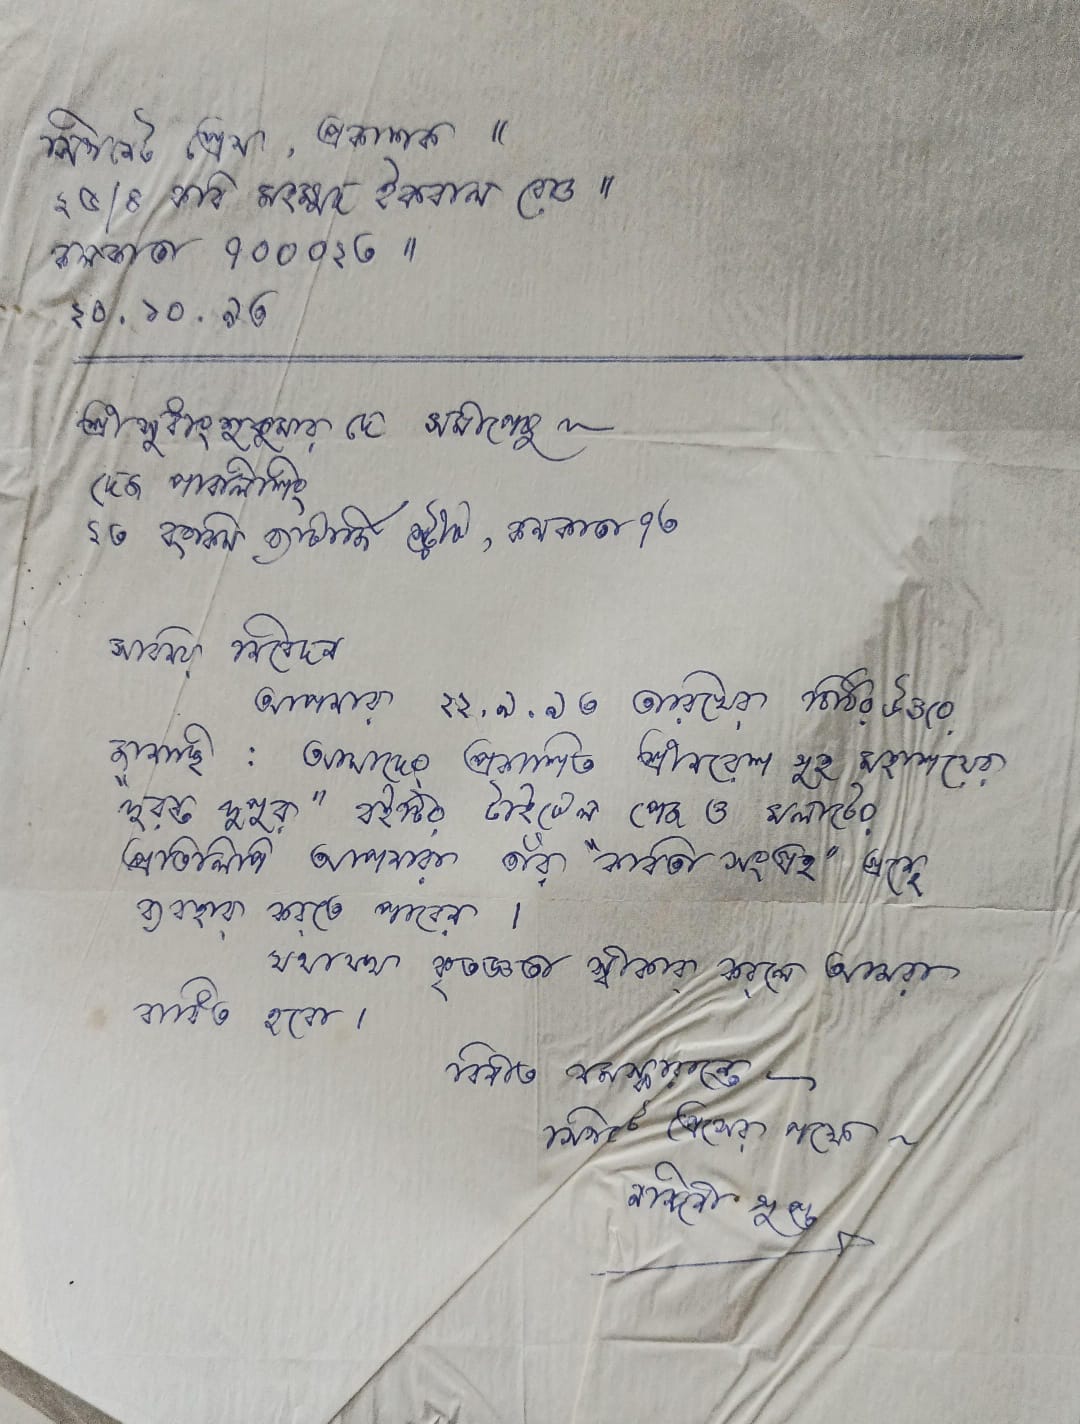 সিগনেট প্রেস, প্রকাশক ॥
২৫/৪ কবি মহম্মদ ইকবাল রোড ॥
কলকাতা ৭০০০২৩ ॥
২০.১০.৯৩
শ্রীসুধাংশুকুমার দে সমীপেষু ~
দেজ পাবলিশিং
১৩ বঙ্কিম চ্যাটার্জি স্ট্রীট, কলকাতা ৭৩
সবিনয় নিবেদন
আপনার ২২.৯.৯৩ তারিখের চিঠির উত্তরে
জানাচ্ছি : আমাদের প্রকাশিত শ্রীনরেশ গুহ মহাশয়ের
"দুরন্ত দুপুর" বইটির টাইটেল পেজ ও মলাটের
প্রতিলিপি আপনারা তাঁর "কবিতা সংগ্রহ" গ্রন্থে
ব্যবহার করতে পারেন।
যথাযথ কৃতজ্ঞতা স্বীকার করলে আমরা
বাধিত হবো।
বিনীত নমস্কারান্তে ~
সিগনেট প্রেসের পক্ষে ~
নন্দিনী গুপ্ত